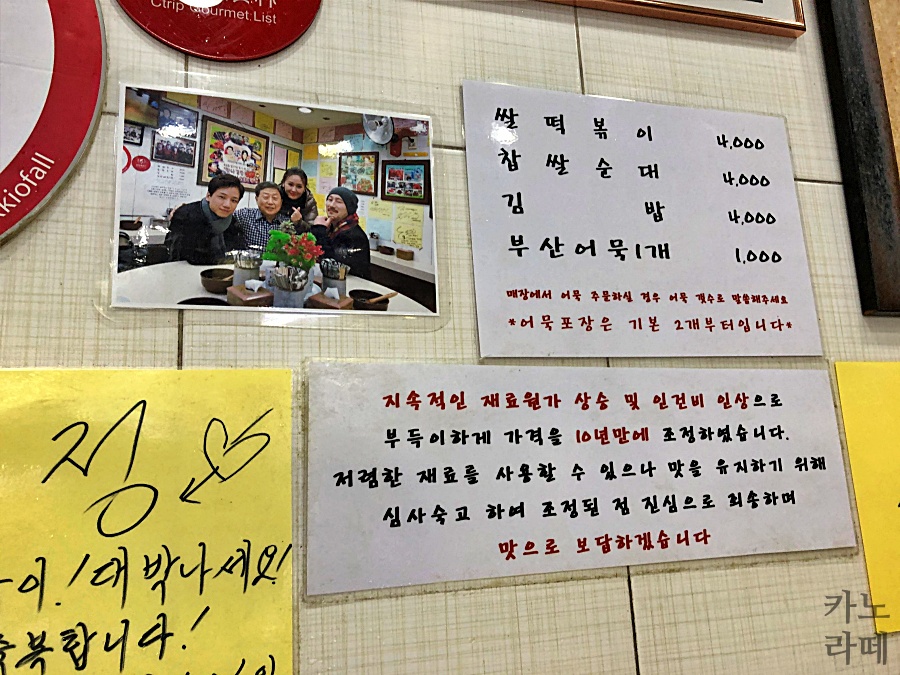 Ctrip Gourmet List
kiofall
쌀떡볶이 4,000
찹쌀순대 4,000
김밥 4,000
부산어묵1개 1,000
매장에서 어묵 주문하실 경우 어묵 갯수로 말씀해주세요
*어묵포장은 기본 2개부터입니다*
지속적인 재료원가 상승 및 인건비 인상으로
부득이하게 가격을 10년만에 조정하였습니다.
저렴한 재료를 사용할 수 있으나 맛을 유지하기 위해
심사숙고 하여 조정된 점 진심으로 죄송하며
맛으로 보답하겠습니다
정
이! 대박나세요!
축복합니다!
카노
라떼